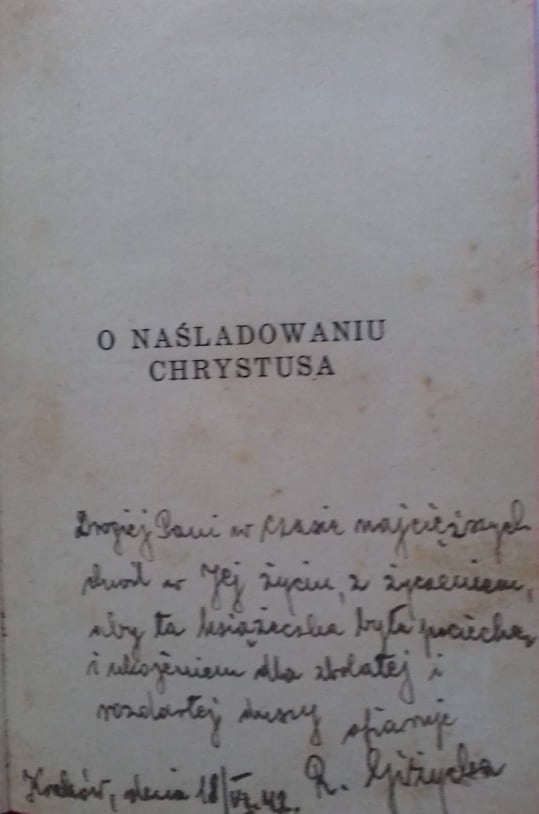 O NAŚLADOWANIU
CHRYSTUSA
Drogiej Pani w czasie najcięższych
chwil w Jej życiu, z życzeniem,
aby ta książeczka była pociechą
i ukojeniem dla zbolałej i
rozdartej duszy ofiaruje
R. Giżycka
Kraków, dnia 18/VI.42.